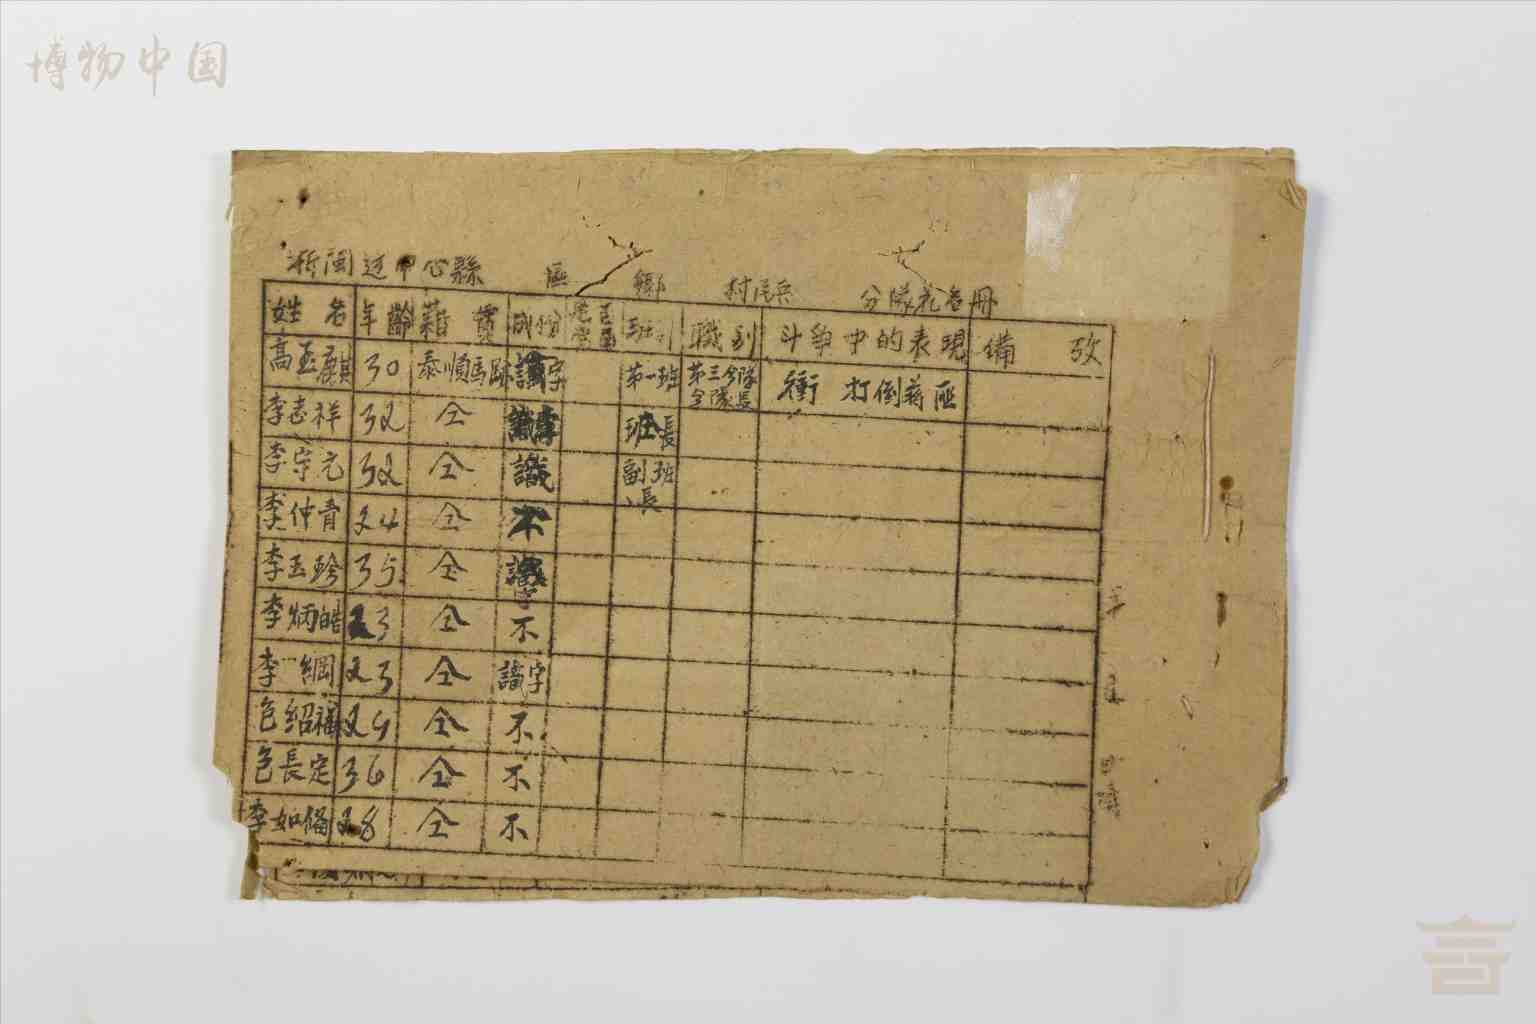 博物中国
浙閩边中心縣 區 鄉 村民兵 分隊花名冊
姓名 年齡 籍貫 成份 是否党員 班别 職别 斗争中的表現 備攷
高玉麒 30 泰順馬跡 識字 第一班 第三分隊分隊長 衝 打倒蒋匪
李志祥 32 仝 識字 班長
李守元 32 仝 識 副班長
李仲青 24 仝 不
李玉珍 35 仝 識字
李炳皓 23 仝 不
李綱 23 仝 識字
包紹福 24 仝 不
包長定 36 仝 不
李如 28 仝 不